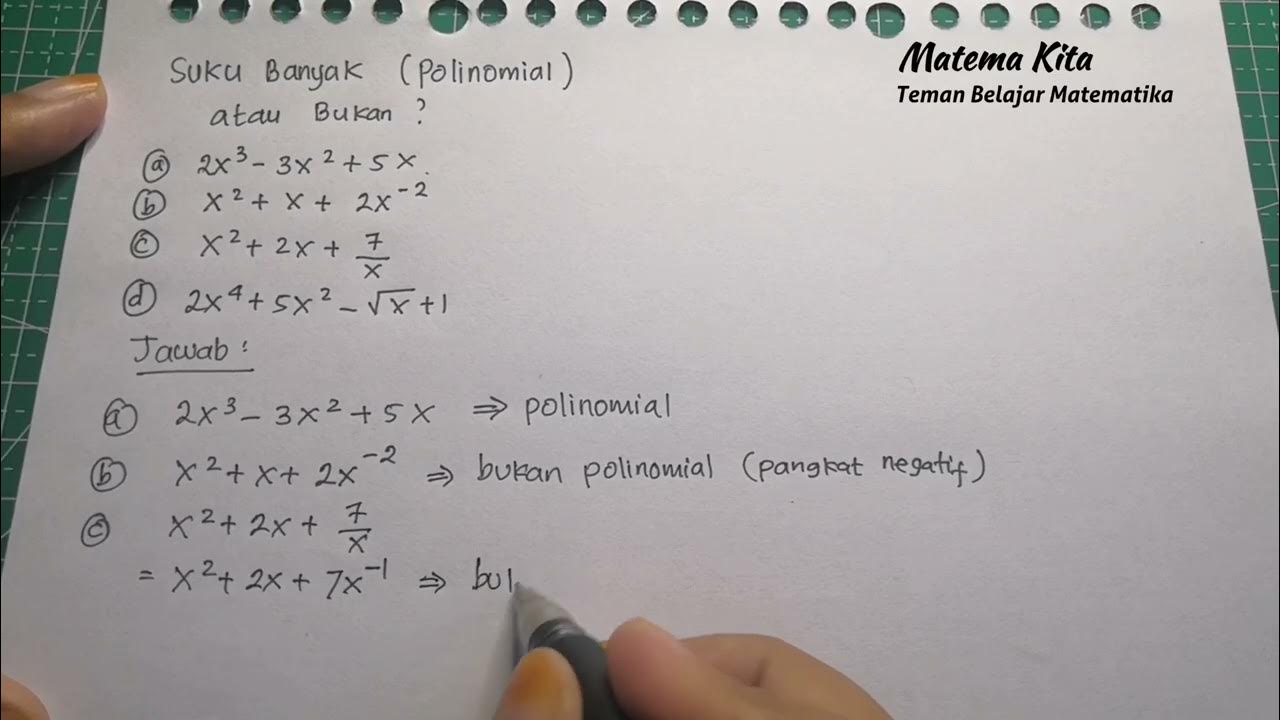 Matema Kita
Teman Belajar Matematika
Suku Banyak (Polinomial)
atau Bukan ?
ⓐ 2x³ - 3x² + 5x.
ⓑ x² + x + 2x⁻²
ⓒ x² + 2x + 7/x
ⓓ 2x⁴ + 5x² - √x + 1
Jawab :
ⓐ 2x³ - 3x² + 5x ⇒ polinomial
ⓑ x² + x + 2x⁻² ⇒ bukan polinomial (pangkat negatif)
ⓒ x² + 2x + 7/x
= x² + 2x + 7x⁻¹ ⇒